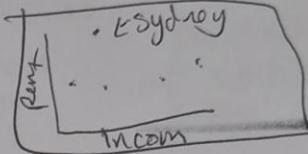 ← Sydney
Rent
Incom